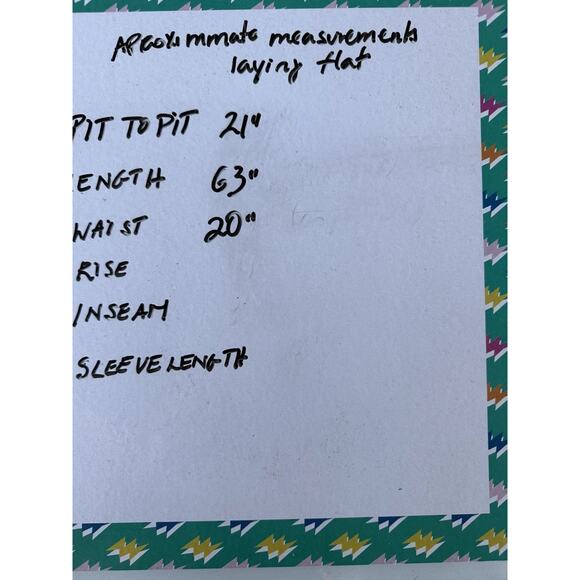 Aproximmate measurements
laying flat
PIT TO PIT 21"
ENGTH 63"
WAIST 20"
RISE
INSEAM
SLEEVE LENGTH